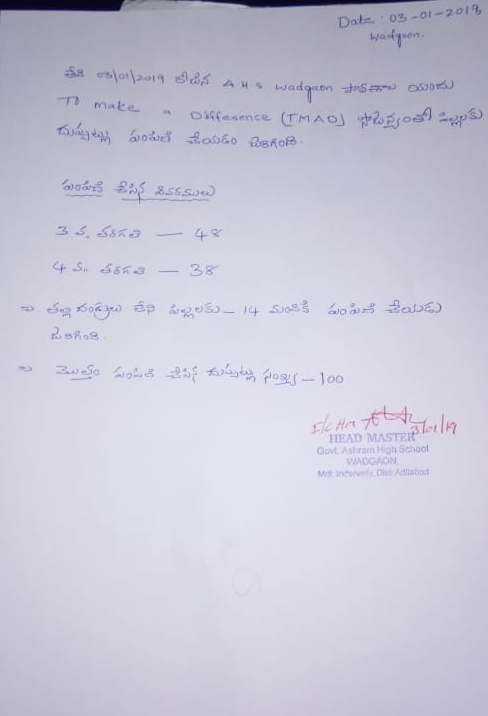 Date : 03-01-2019
Wadgaon.
తేది 03/01/2019 రోజున A H S Wadgaon పాఠశాల యందు
To make a Difference (TMAD) సౌజన్యంతో పిల్లలకు
దుప్పట్లు పంపిణి చేయడం జరిగింది.
పంపిణి చేసిన వివరములు
3 వ. తరగతి — 48
4 వ. తరగతి — 38
⇒ తల్లి దండ్రులు లేని పిల్లలకు – 14 మందికి పంపిణి చేయడం
జరిగింది.
⇒ మొత్తం పంపిణి చేసిన దుప్పట్లు సంఖ్య – 100
I/c Hm 3/01/19
HEAD MASTER
Govt. Ashram High School
WADGAON.
Mdl: Indervelly, Dist: Adilabad